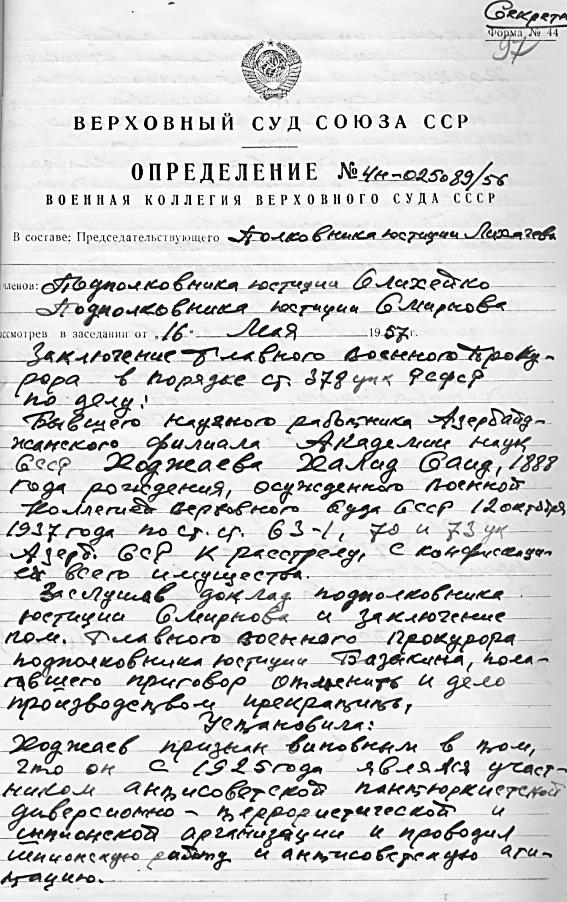 Секретн
Форма № 44
97
ВЕРХОВНЫЙ СУД СОЮЗА ССР
ОПРЕДЕЛЕНИЕ № 4н-025089/56
ВОЕННАЯ КОЛЛЕГИЯ ВЕРХОВНОГО СУДА СССР
В составе: Председательствующего Полковника юстиции Лихачева
членов: Подполковника юстиции Слихейко
Подполковника юстиции Смирнова
ассмотрев в заседании от "16" Мая 1957 г.
Заключение Главного Военного Проку-
рора в порядке ст. 378 упк РСФСР
по делу:
Бывшего научного работника Азербайд-
жанского филиала Академии наук
СССР Ходжаева Халид Саид, 1888
года рождения, осужденного Военной
Коллегией Верховного Суда СССР 12 октября
1937 года по ст. ст. 63-1, 70 и 73 ук
Азерб. ССР к расстрелу, с конфискаци-
ей всего имущества.
Заслушав доклад подполковника
юстиции Смирнова и заключение
пом. Главного Военного Прокурора
подполковника юстиции Базыкина, пола-
гавшего приговор отменить и дело
производством прекратить,
Установила:
Ходжаев признан виновным в том,
что он с 1925 года являлся участ-
ником антисоветской пантюркистской
диверсионно-террористической и
шпионской организации и проводил
шпионскую работу и антисоветскую аги-
тацию.